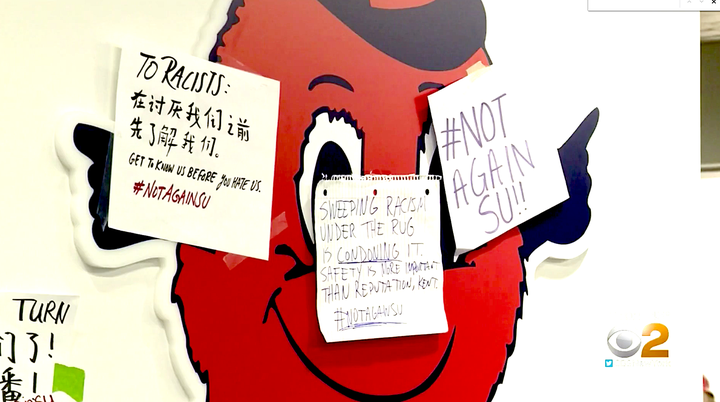 TO RACISTS:
在讨厌我们之前
先了解我们。
GET TO KNOW US BEFORE YOU HATE US.
#NOTAGAINSU
SWEEPING RACISM
UNDER THE RUG
IS CONDONING IT.
SAFETY IS MORE IMPORTANT
THAN REPUTATION, KENT.
#NOTAGAINSU
#NOT
AGAIN
SU!!
TURN
们了!
番!
2